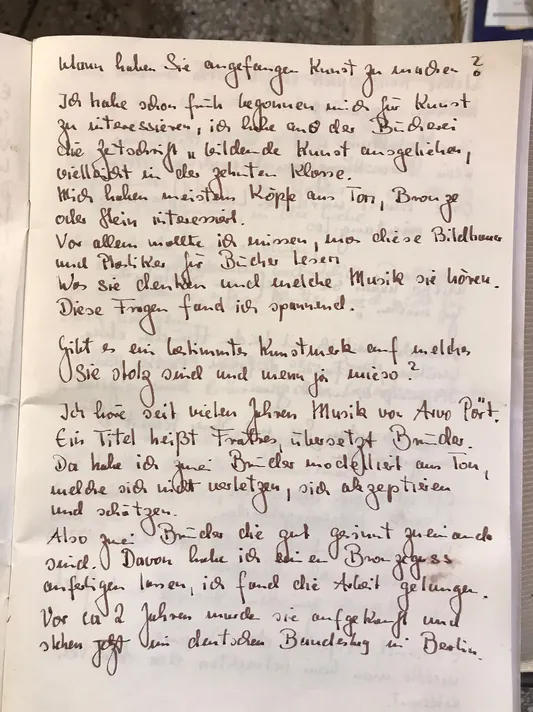 Wann haben Sie angefangen Kunst zu machen ?
Ich habe schon früh begonnen mich für Kunst
zu interessieren, ich habe aus der Bücherei
die Zeitschrift „bildende Kunst ausgeliehen,
vielleicht in der zehnten Klasse.
Mich haben meistens Köpfe aus Ton, Bronze
oder Stein interessiert.
Vor allem wollte ich wissen, was diese Bildhauer
und Plastiker für Bücher lesen
Was sie denken und welche Musik sie hören.
Diese Fragen fand ich spannend.
Gibt es ein bestimmtes Kunstwerk auf welches
Sie stolz sind und wenn ja wieso?
Ich höre seit vielen Jahren Musik von Arvo Pärt.
Ein Titel heißt Fratres, übersetzt Brüder.
Da habe ich zwei Brüder modelliert aus Ton,
welche sich nicht verletzen, sich akzeptieren
und schätzen.
Also zwei Brüder die gut gesinnt zueinander
sind. Davon habe ich einen Bronzeguss
anfertigen lassen, ich fand die Arbeit gelungen.
Vor ca 2 Jahren wurde sie aufgekauft und
stehen jetzt im deutschen Bundestag in Berlin.